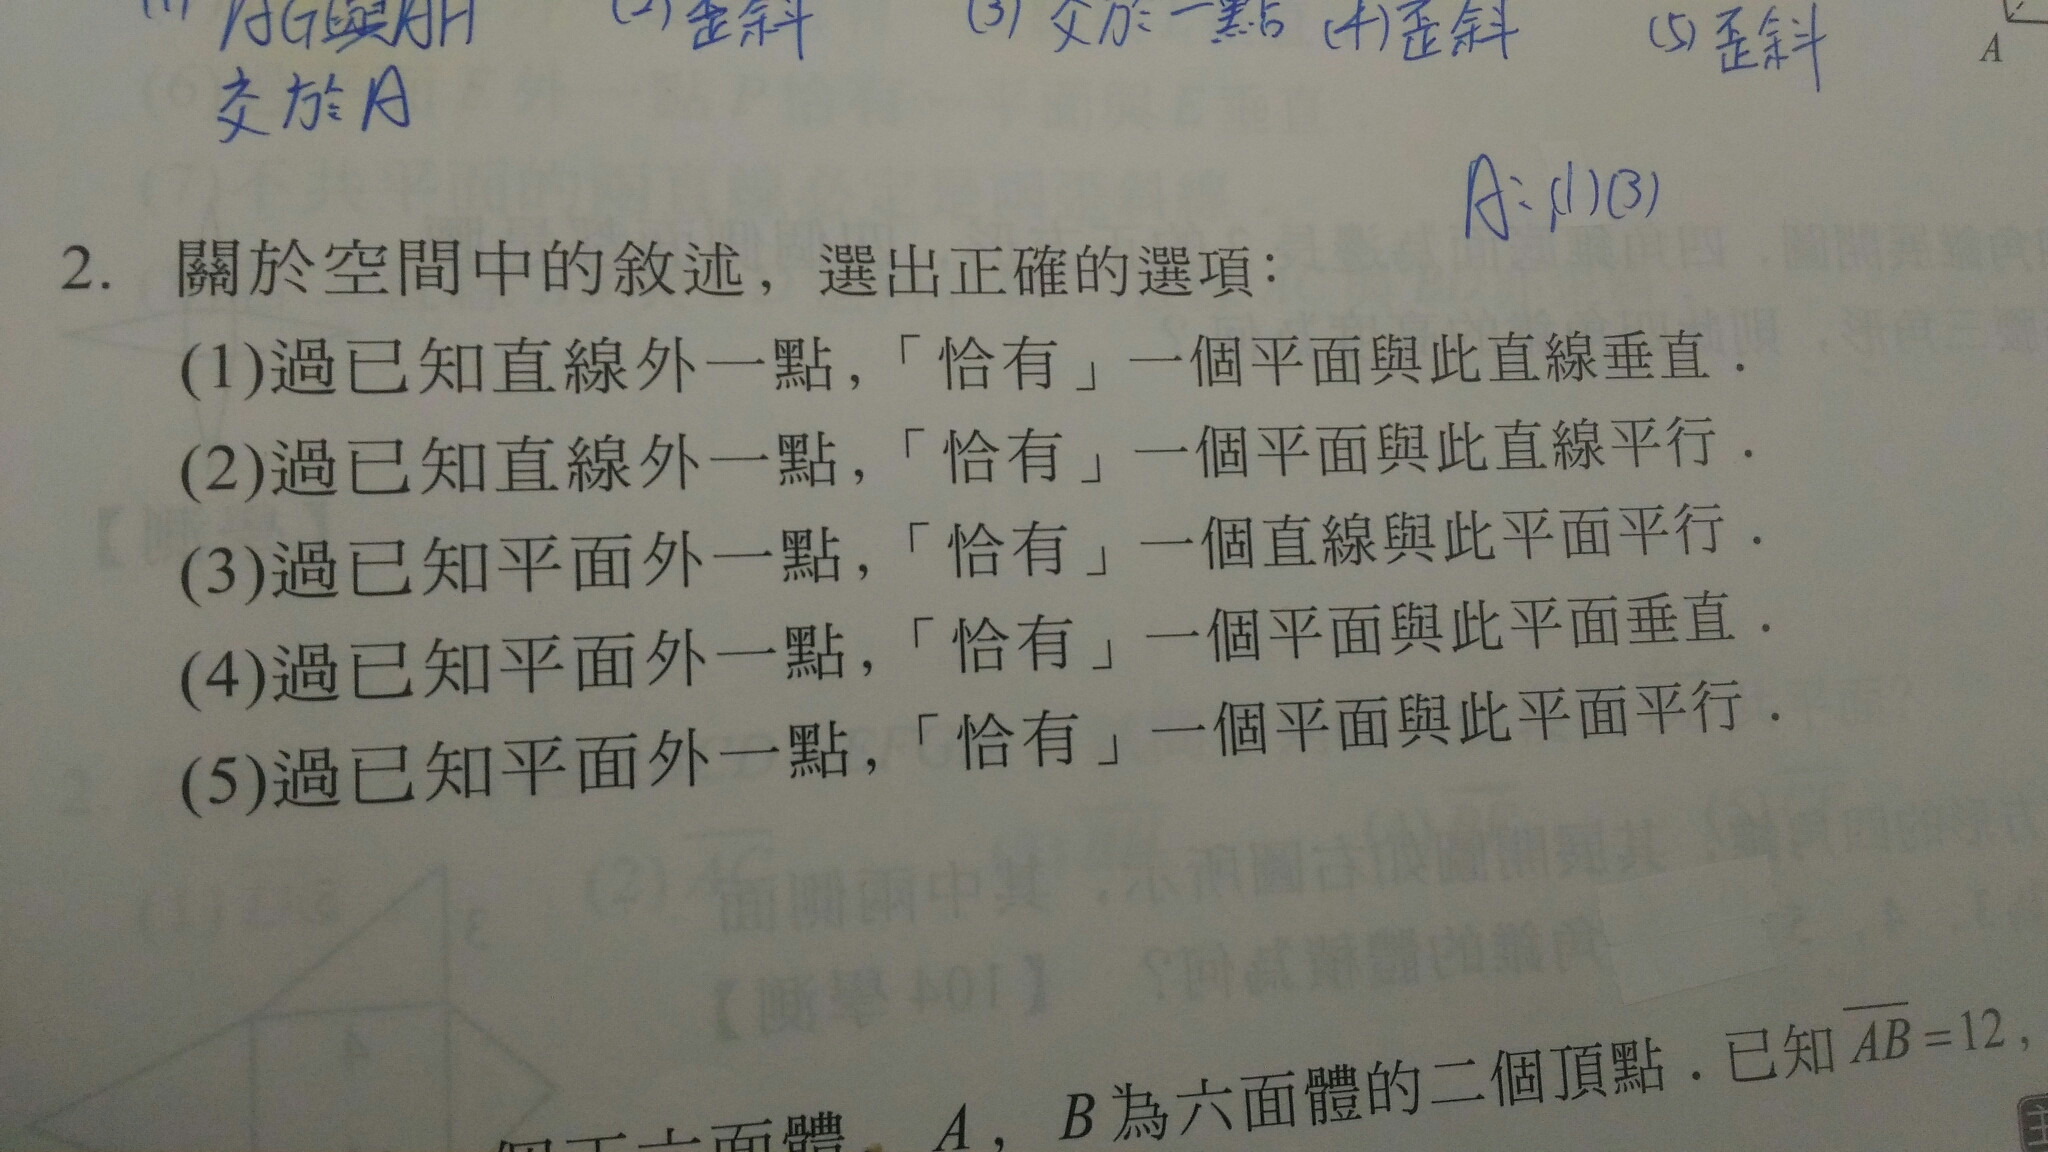 (1) AG與AH (2) 歪斜 (3) 交於一點 (4) 歪斜 (5) 歪斜
交於A
A
A:(1)(3)
2. 關於空間中的敘述，選出正確的選項：
(1)過已知直線外一點，「恰有」一個平面與此直線垂直．
(2)過已知直線外一點，「恰有」一個平面與此直線平行．
(3)過已知平面外一點，「恰有」一個直線與此平面平行．
(4)過已知平面外一點，「恰有」一個平面與此平面垂直．
(5)過已知平面外一點，「恰有」一個平面與此平面平行．
個正六面體，A，B為六面體的二個頂點．已知AB=12，